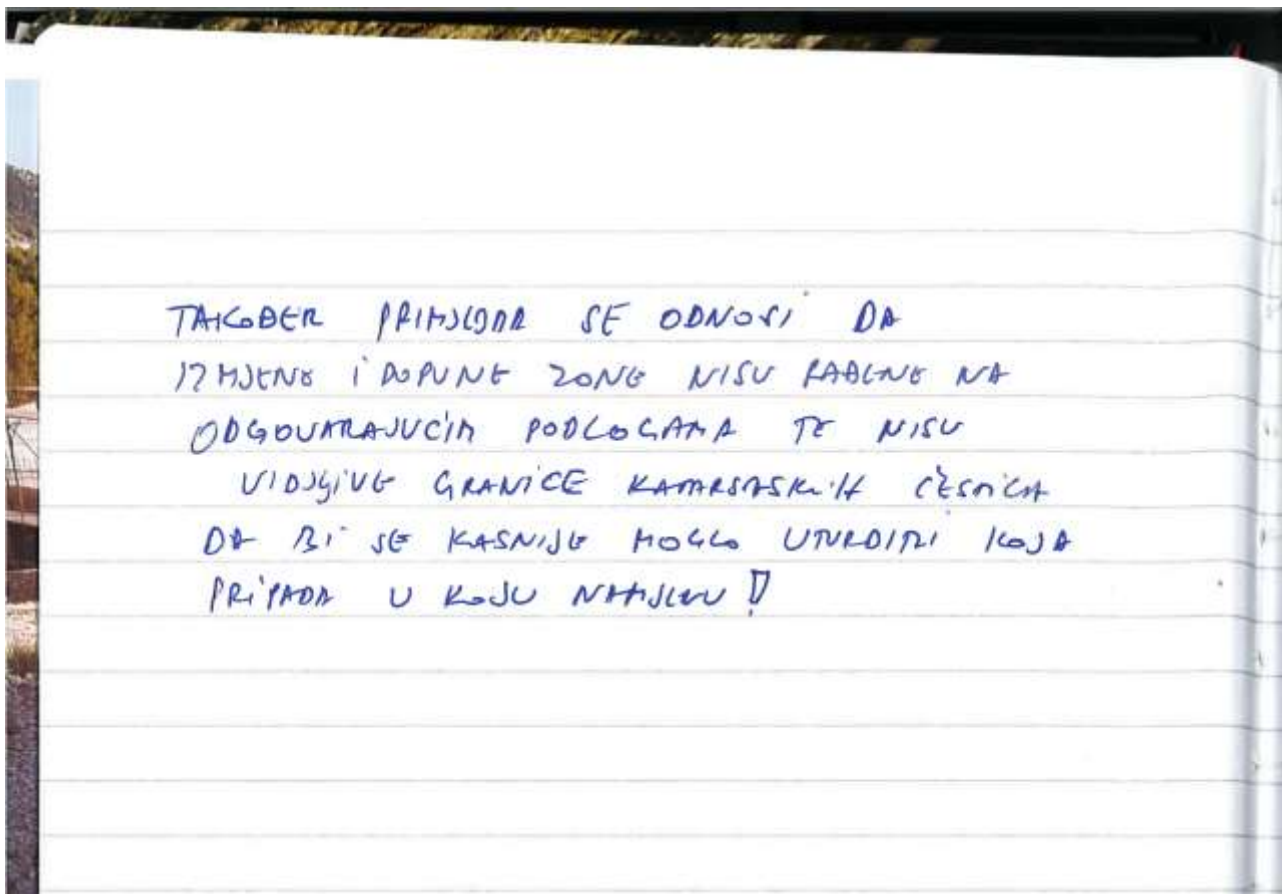 TAKOĐER PRIMJEDBA SE ODNOSI DA
IZMJENE I DOPUNE ZONE NISU RAĐENE NA
ODGOVARAJUĆIM PODLOGAMA TE NISU
VIDLJIVE GRANICE KATARSTASKIH ČESTICA
DA BI SE KASNIJE MOGLO UTVRDITI KOJA
PRIPADA U KOJU NAMJENU!